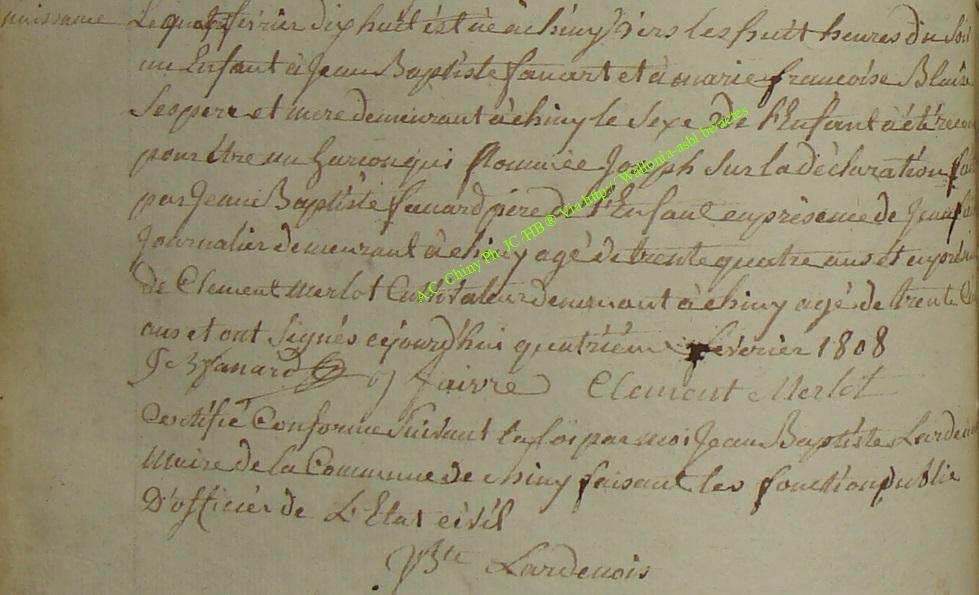 naissance Le quatre février dix huit est né à chiny vers les huit heures du soir
un Enfant à Jean Baptiste fanart et à marie francoise
Ses pere et mere demeurant à chiny le Sexe de l'Enfant à été
pour être un Garcon qui Nommée Joseph Sur la dèclaration
par Jean Baptiste fanard père de l'Enfant en presence de Jean
Journalier demeurant à chiny agé de trente quatre ans et en
de Clement Merlot Cultivateur demeurant à chiny agé de trente
ans et ont Signés cejourd'hui quatrième fevérier 1808
J B fanard J faivre Clement Merlot
Certifié Conforme Suivant la loi par moi Jean Baptiste
Maire de la Commune de chiny faisant les fonction public
D'officier de L'Etat civil
JBte Lardenois
A.C. Chiny Ph. JC HB ® Via http:// Wallonia-asbl be/actes